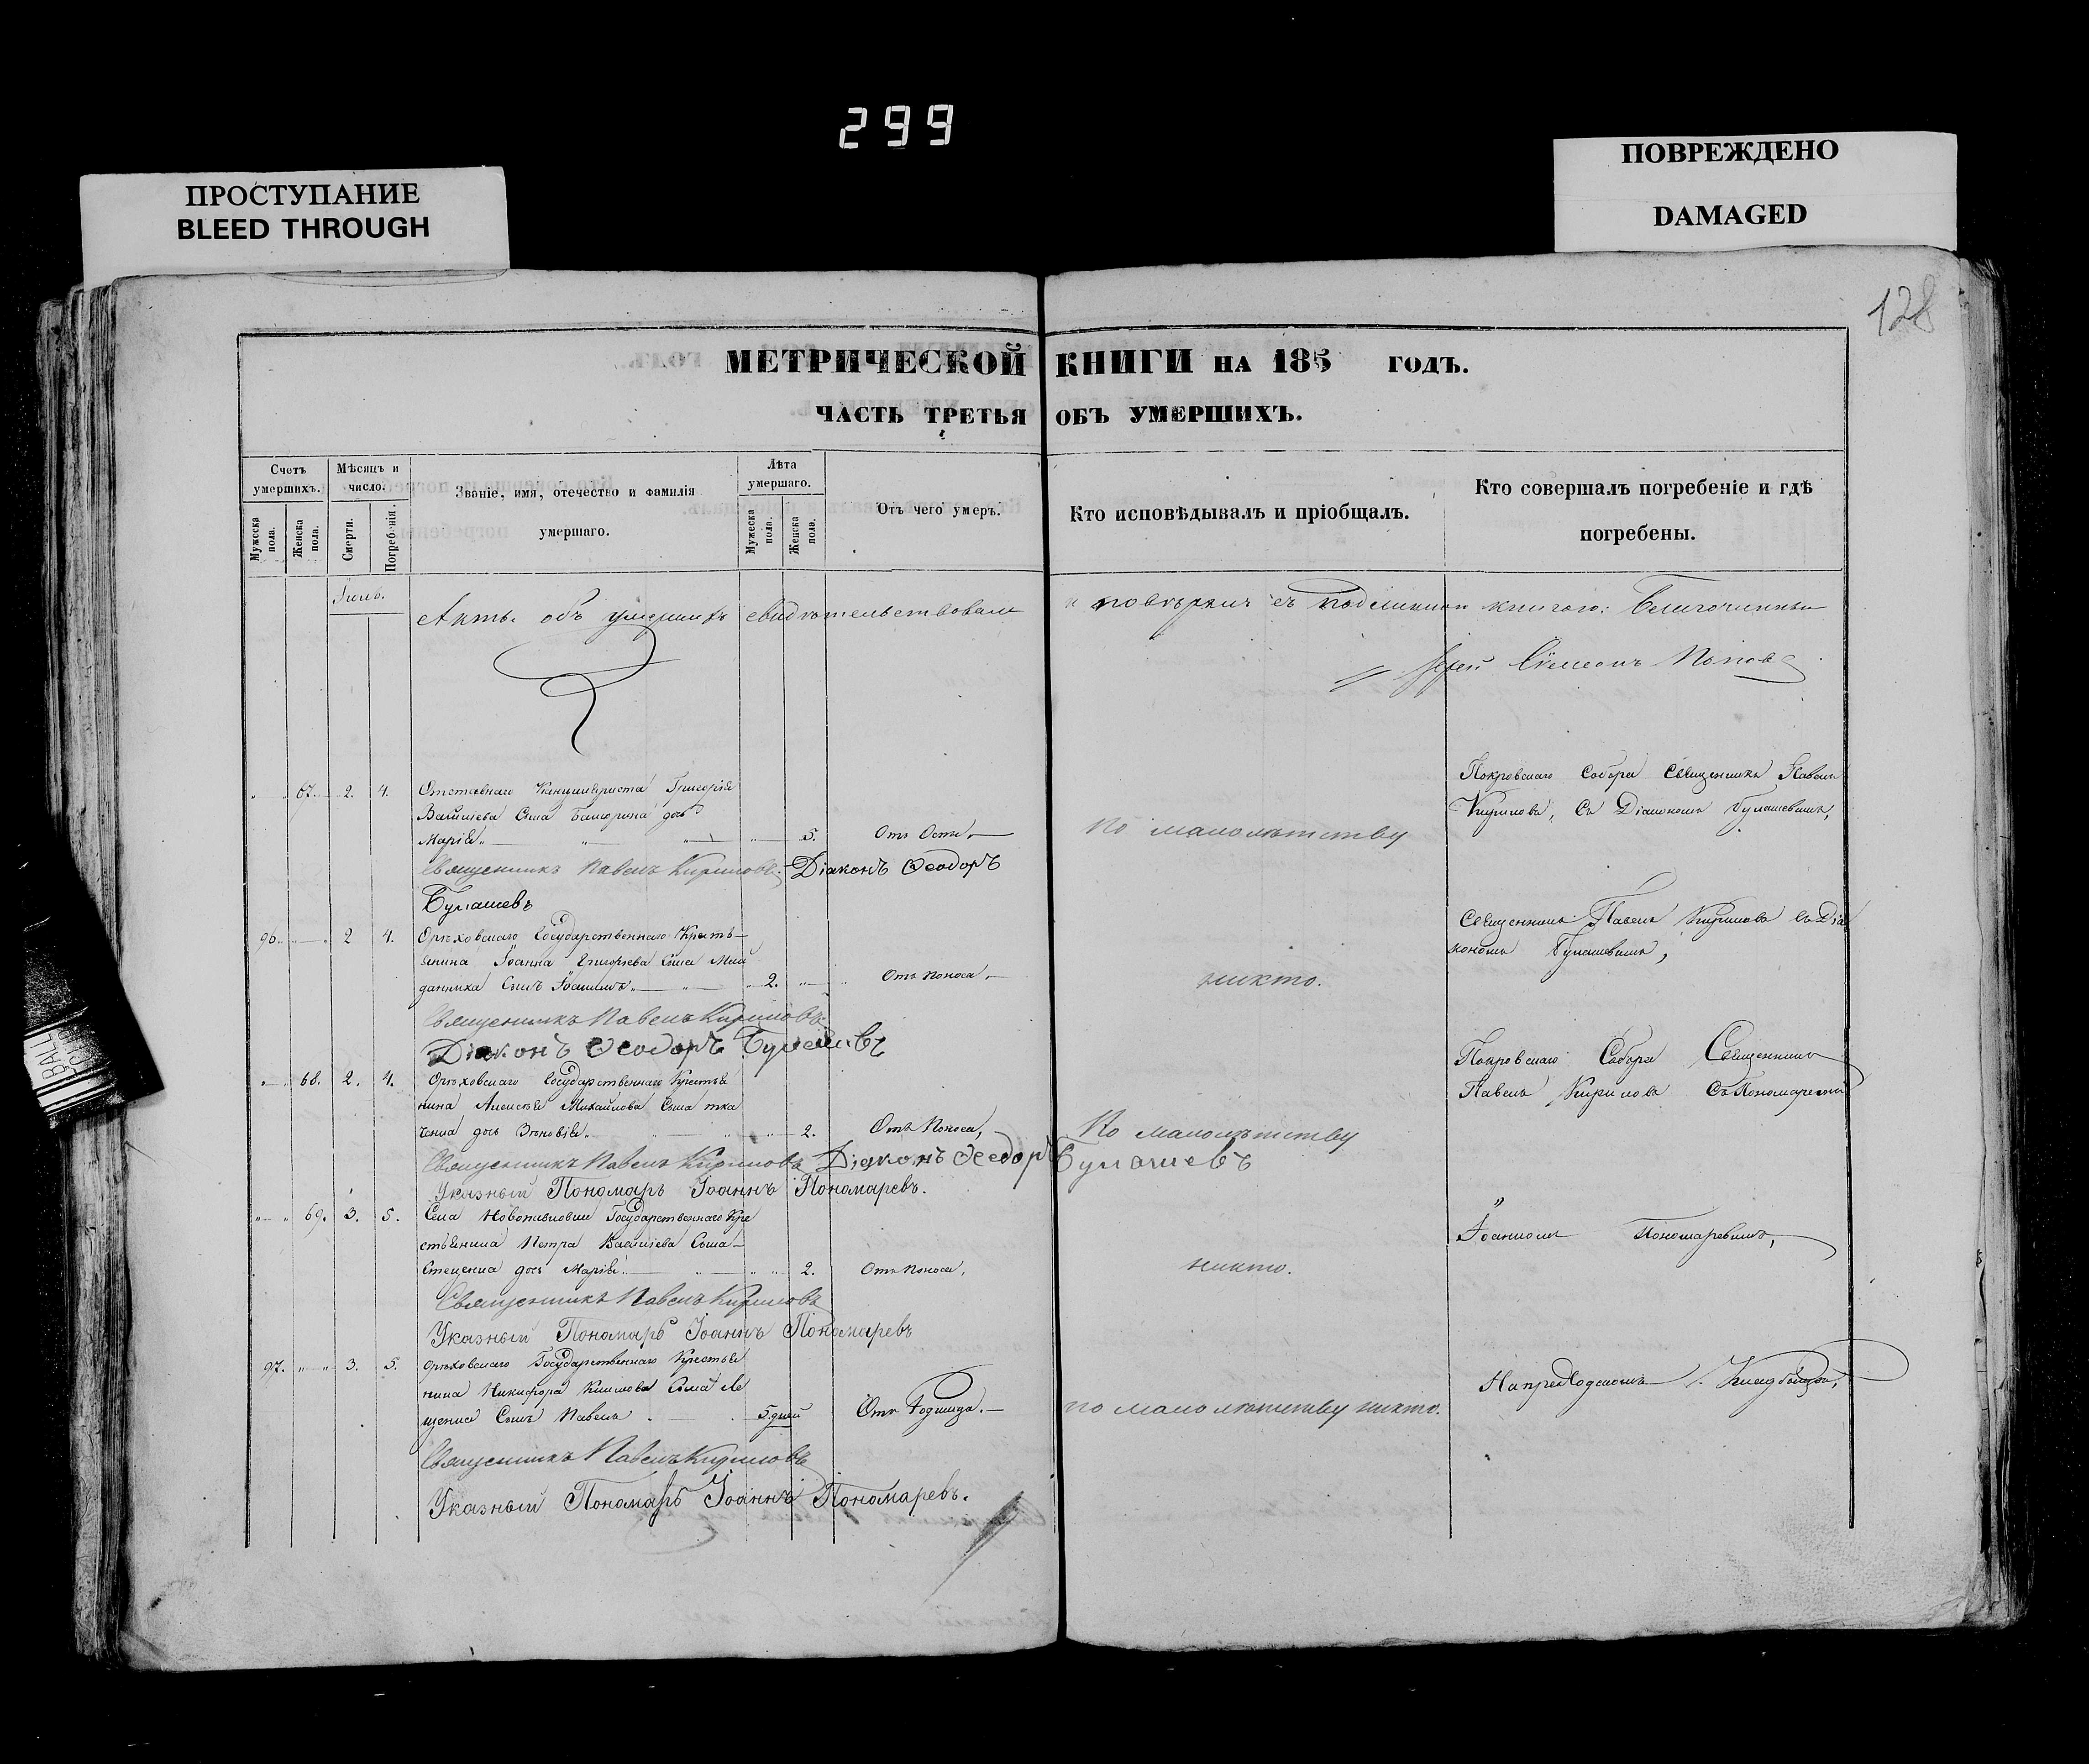 299
ПРОСТУПАНИЕ
BLEED THROUGH
ПОВРЕЖДЕНО
DAMAGED
128
МЕТРИЧЕСКОЙ КНИГИ НА 185 ГОДЪ.
ЧАСТЬ ТРЕТЬЯ ОБЪ УМЕРШИХЪ.
Счетъ умершихъ.
Мужеска пола.
Женска пола.
Мѣсяцъ и число.
Смерти.
Погребенія.
Званіе, имя, отечество и фамилія
умершаго.
Лѣта умершаго.
Мужеска пола.
Женска пола.
Отъ чего умеръ.
Кто исповѣдывалъ и пріобщалъ.
Кто совершалъ погребеніе и гдѣ
погребены.
Актъ объ умершихъ свидѣтельствовалъ и повѣрялъ съ подлинною книгою: Благочинный
Іерей Симеонъ Поповъ
67. 2. 4. Отставнаго Канцеляриста Григорія
дочь
Марія 5. Отъ Оспы
По малолѣтству
Покровскаго Собора Священникъ Павелъ
Кириловъ, съ Діакономъ Булашевымъ,
Священникъ Павелъ Кириловъ. Діаконъ Ѳеодоръ
Булашевъ
96. 2 4. Орѣховскаго Государственнаго Кресть-
янина Іоанна Григорьева Сына
сынъ 2. Отъ Поноса
никто.
Священникъ Павелъ Кириловъ съ Діа
кономъ Булашевымъ,
Священникъ Павелъ Кириловъ
Діаконъ Ѳеодоръ Булашевъ
68. 2. 4. Орѣховскаго Государственнаго Крестья
нина Алексѣя Михайлова Сына Тка
ченка дочь Зѣновія 2. Отъ Поноса,
По малолѣтству
Покровскаго Собора Священникъ
Павелъ Кириловъ съ Пономаремъ
Священникъ Павелъ Кириловъ Діаконъ Ѳеодоръ Булашевъ
Указный Пономарь Іоаннъ Пономаревъ.
69. 3. 5. Села Новопавловки Государственнаго Кре
стьянина Петра Василіева Сына
Стеценка дочь Марія 2. Отъ Поноса,
никто.
Іоанномъ Пономаревымъ,
Священникъ Павелъ Кириловъ
Указный Пономарь Іоаннъ Пономаревъ
97. 3. 5. Орѣховскаго Государственнаго Крестья
нина Никифора Климова Сына Ле
щенка Сынъ Павелъ 5 дней Отъ Родимца.
по малолѣтству никто.
На приходскомъ Кладбищѣ,
Священникъ Павелъ Кириловъ
Указный Пономарь Іоаннъ Пономаревъ.